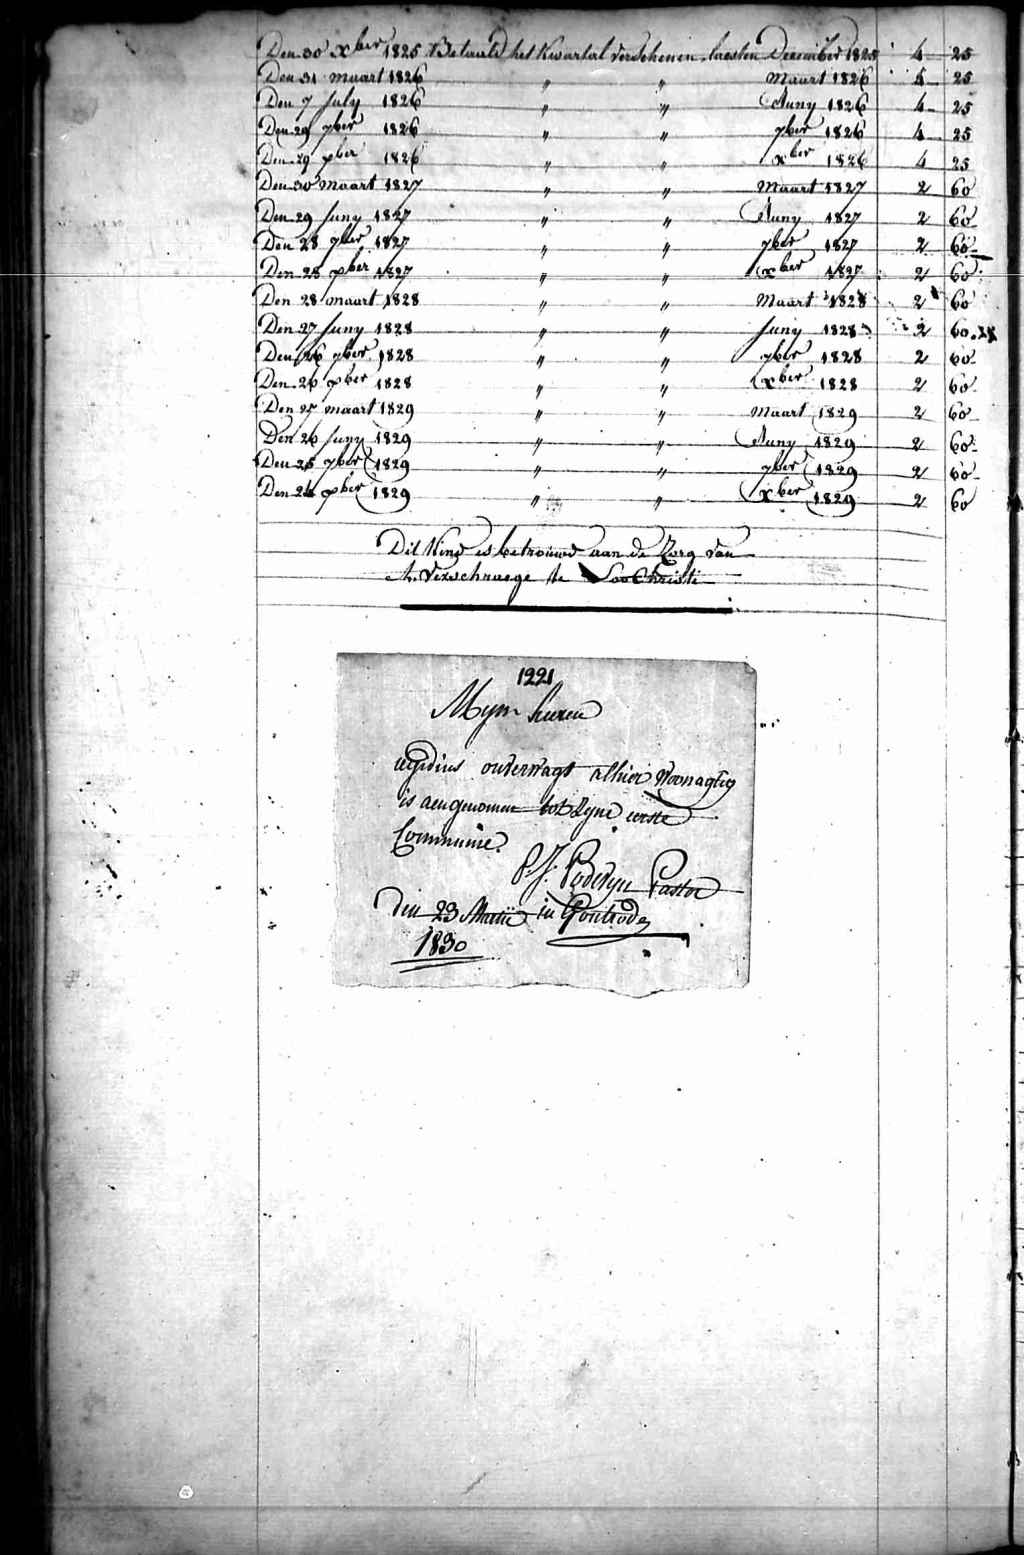 Den 30 xber 1825 Betaald het Kwartal verschenen laesten December 1825 4 25
Den 31 maart 1826 " " Maart 1826 4 25
Den 7 july 1826 " " Juny 1826 4 25
Den 29 7ber 1826 " " 7ber 1826 4 25
Den 29 xber 1826 " " xber 1826 4 25
Den 30 maart 1827 " " Maart 1827 2 60
Den 29 juny 1827 " " Juny 1827 2 60
Den 28 7ber 1827 " " 7ber 1827 2 60
Den 28 xber 1827 " " xber 1827 2 60
Den 28 maart 1828 " " Maart 1828 2 60
Den 27 juny 1828 " " juny 1828 2 60
Den 26 7ber 1828 " " 7ber 1828 2 60
Den 26 xber 1828 " " xber 1828 2 60
Den 27 maart 1829 " " Maart 1829 2 60
Den 26 juny 1829 " " Juny 1829 2 60
Den 25 7ber 1829 " " 7ber 1829 2 60
Den 24 xber 1829 " " xber 1829 2 60
Dit Kind is betrouwd aan de Zorg van
A. Verschraege te Loo Christi
1221
Myn heeren
egidius onderwagt alhier Woonagtig
is aengenomen tot Zyne eerste
Communie.
P. J. Pastor
Den 23 Martii in Gontrode
1830